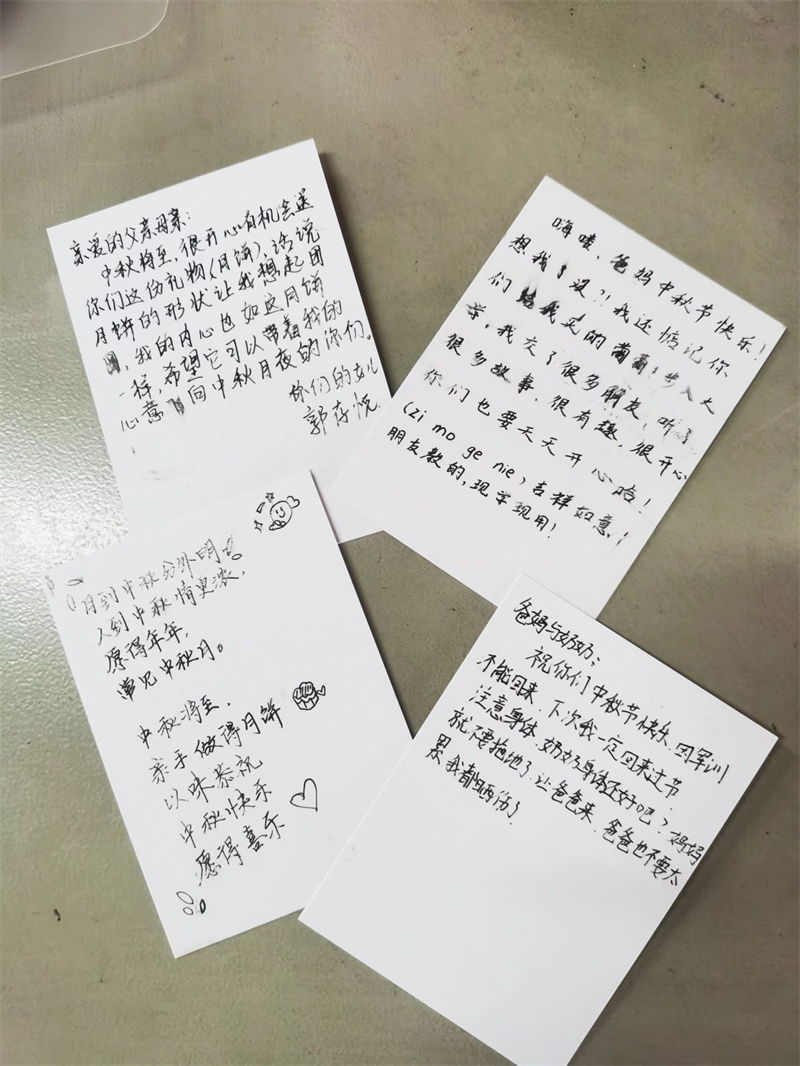 亲爱的父亲母亲：
中秋将至，很开心有机会送
你们这份礼物(月饼)，话说
月饼的形状让我想起团
，我的内心也如这月饼
一样，希望它可以带着我的
心意 向中秋月夜的你们。
你们的女儿
郭存悦
嗨喽，爸妈中秋节快乐！
想我了没？！我还惦记你
们给我买的葡萄！步入大
学，我交了很多朋友，听了
很多故事，很有趣，很开心
你们也要天天开心哈！
(zi mo ge nie，吉祥如意！
朋友教的，现学现用！
月到中秋分外明。
人到中秋情更浓，
愿得年年，
常见中秋月。
中秋将至，
亲手做得月饼
以味恭祝
中秋快乐
愿得喜乐
爸妈与奶奶：
祝你们中秋节快乐、因军训
不能回来，下次我一定回来过节
注意身体，奶奶身体还好吧？妈妈
就 拖地了，让爸爸来、爸爸也不要太
累，我都晒伤了